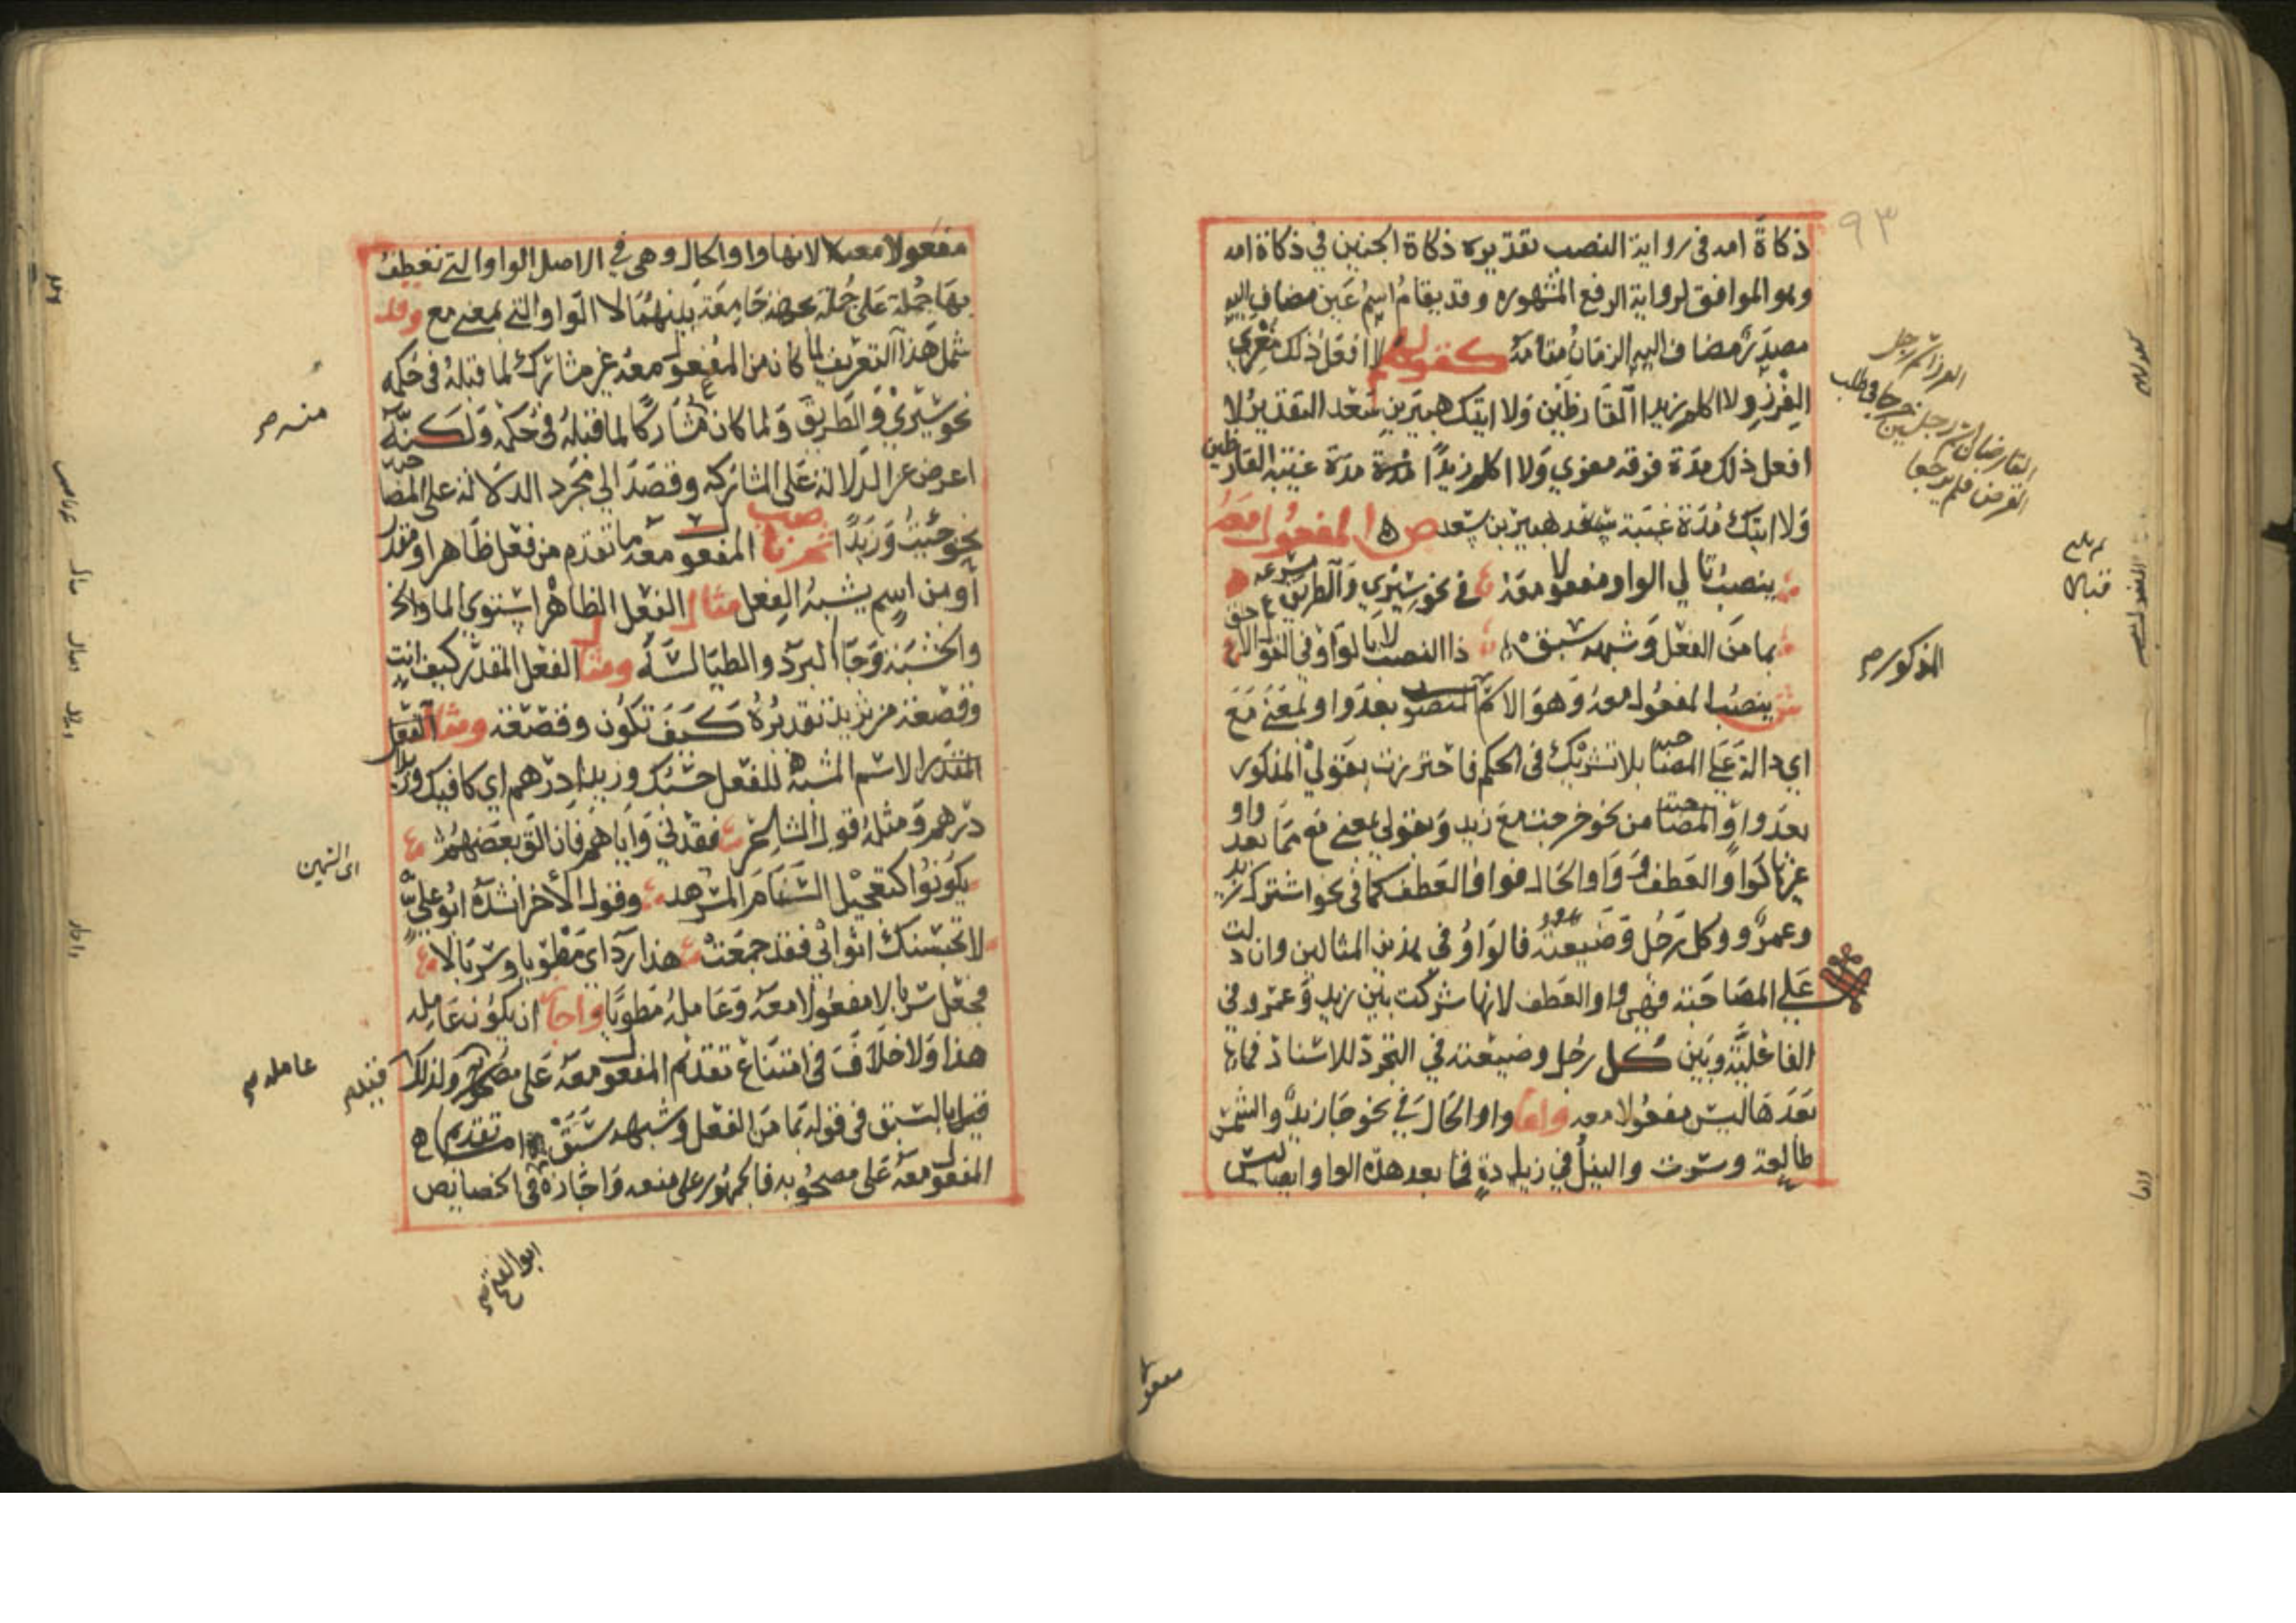 ٩٣
ذكاة امه في رواية النصب تقديره ذكاة الجنين في ذكاة امه
وهو الموافق لرواية الرفع المشهوره وقد يقام اسم عين مضاف اليه
مصدر مضاف اليه الزمان مقامه كقولهم لا افعل ذلك معزي
الفرز ولا اكلم زيدا القارظين ولا اتيك هبيرة بن سعد التقدير لا
افعل ذلك مدة فرقه معزي ولا اكلم زيدا مدة غيبة القارظين
ولا اتيك مدة غيبة هبيرة بن سعد ص المفعول معه
ينصب تالي الواو مفعولا معه في نحو سيري والطريق مسرعه
بما من الفعل وشبهه سبق ذا النصب لا بالواو في القول الاحق
ش ينصب المفعول معه وهو الاسم المنصوب بعد واو بمعنى مع
اي دالة على المصاحبه بلا تشريك في الحكم فاحترزت بقولي المذكور
بعد واو المصاحبة من نحو خرجت مع زيد وبقولي بمعنى مع مما بعد واو
غيرها كواو العطف وواو الحال فواو العطف كما في نحو اشترك زيد
وعمرو وكل رجل وضيعته فالواو في هذين المثالين وان دلت
على المصاحبة فهي واو العطف لانها شركت بين زيد وعمرو في
الفاعلية وبين كل رجل وضيعته في التجرد للاسناد فما
بعدها ليس مفعولا معه واما واو الحال في نحو جا زيد والشمس
طالعة وسرت والنيل في زيادة فما بعد هذه الواو ايضا ليس
المذكور صح
مفعولا معه لانها واو الحال وهي في الاصل الواو التي تعطف
بها جملة على جملة لجهة جامعة بينهما لا الواو التي بمعنى مع وقد
شمل هذا التعريف لما كان من المفعول معه غير مشارك لما قبله في حكمه
نحو سيري والطريق ولما كان مشاركا لما قبله في حكمه ولكنه
اعرض عن الدلالة على المشاركه وقصد الى مجرد الدلالة على المصاحبه
نحو جئت وزيدا المفعول معه ما تقدم من فعل ظاهر او مقدر
او من اسم يشبه الفعل مثال الفعل الظاهر استوى الما والخشبة
وجا البرد والطيالسة ومثال الفعل المقدر كيف انت
وقصعة من ثريد تقديره كيف تكون وقصعة ومثال الفعل
المقدر الاسم المشبه للفعل حسبك وزيدا درهم اي كافيك وزيدا
درهم ومثله قول الشاعر فقدني واياهم فان الق بعضهم
يكونوا كتعجيل السنام المسرهد وقول الاخر انشده ابو علي
لا تحبسنك اثوابي فقد جمعت هذا ردائي مطويا وسربالا
فجعل سربالا مفعولا معه وعامله مطويا واجاز ان يكون عامله
هذا ولا خلاف في امتناع تقديم المفعول معه على عامله ولذلك
قيد بالسبق في قوله بما من الفعل وشبهه سبق اما تقدم
المفعول معه على مصحوبه فالجمهور على منعه واجازه في الخصايص
منه صح
عامله صح
ابو الفتح صح